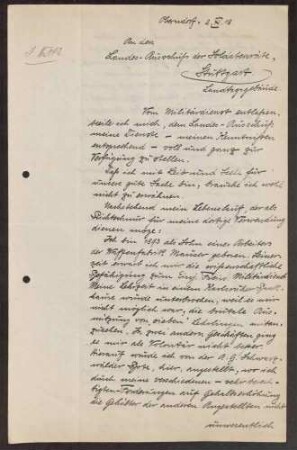 Oberndorf, 2. XII. 18
An den
Landes-Ausschuß der Soldatenräte,
Stuttgart
Landtagsgebäude
Vom Militärdienst entlassen,
stelle ich mich, dem Landes-Ausschuß
meine Dienste – meinen Kenntnissen
entsprechend – voll und ganz zur
Verfügung zu stellen.
Daß ich mit Leib und Seele für
unsere gute Sache bin, brauche ich wohl
nicht zu erwähnen.
Nachstehend mein Lebenslauf, der als
Richtschnur für meine dortige Verwendung
dienen möge:
Ich bin 1893 als Sohn eines Arbeiters
der Waffenfabrik Mauser geboren. Seiner
zeit erwarb ich mir die wissenschaftliche
Befähigung zum Einj. Freiw. Militärdienst.
Meine Lehrzeit in einem Karlsruher
wurde unterbrochen, weil es mir
nicht möglich war, die brutale Aus-
nützung von seiten Lehrherrn
In zwei andern Geschäften ging
es mir als Volontär nicht besser.
Hierauf wurde ich von der A. G. Schwarz-
wälder Bote, hier, angestellt, wo ich
durch meine verschiedenen – sehr berech-
tigten – Forderungen auf Gehaltserhöhung
die Gehälter der anderen Angestellten nicht
unwesentlich